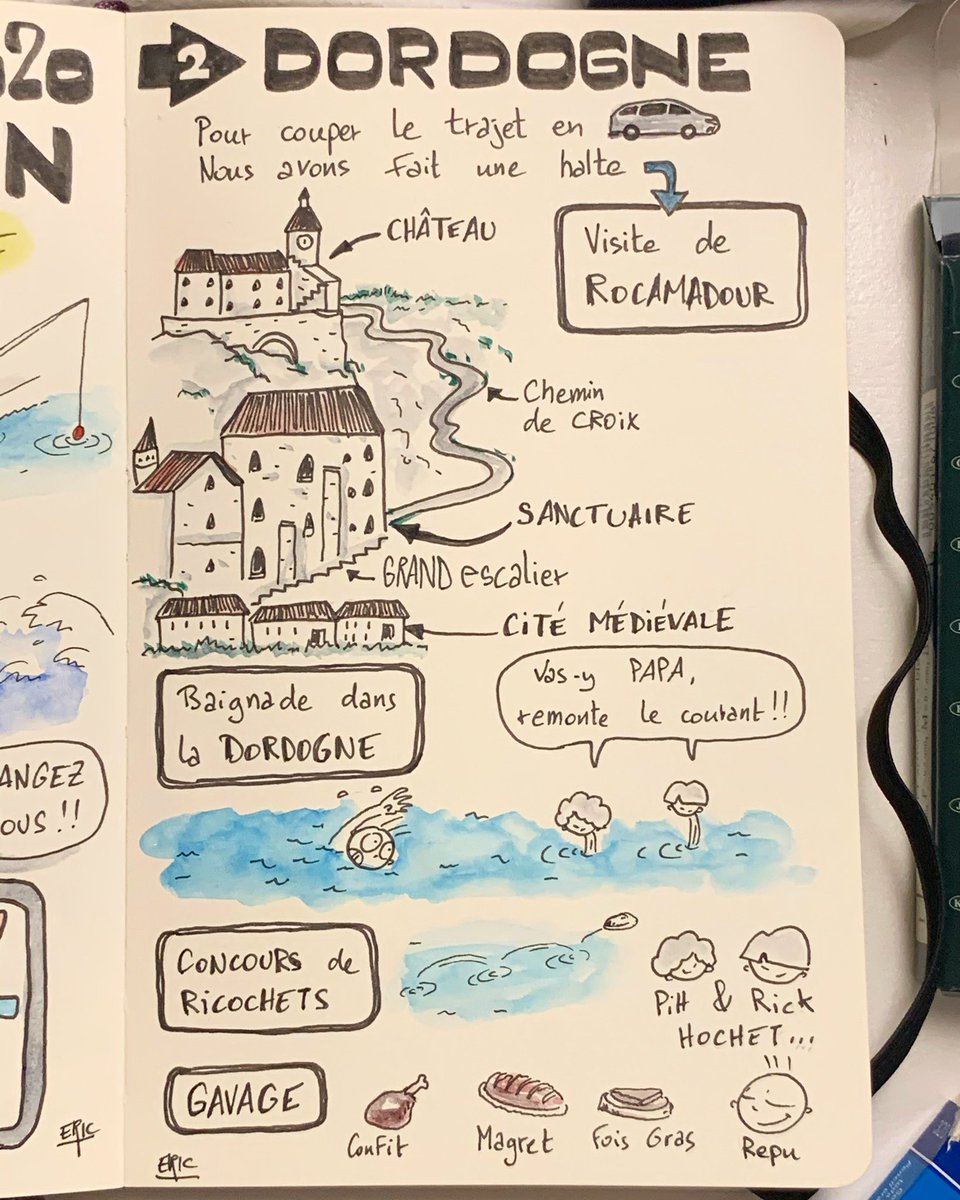 020
N
ANGEZ
OUS !!
ERIC
2 DORDOGNE
Pour couper le trajet en
Nous avons fait une halte
Visite de
ROCAMADOUR
CHÂTEAU
Chemin
de CROIX
SANCTUAIRE
GRAND escalier
CITÉ MÉDIÉVALE
Baignade dans
la DORDOGNE
Vas-y PAPA,
remonte le courant !!
CONCOURS de
RICOCHETS
Pitt & Rick
HOCHET...
GAVAGE
Confit
Magret
Fois Gras
Repu
ERIC